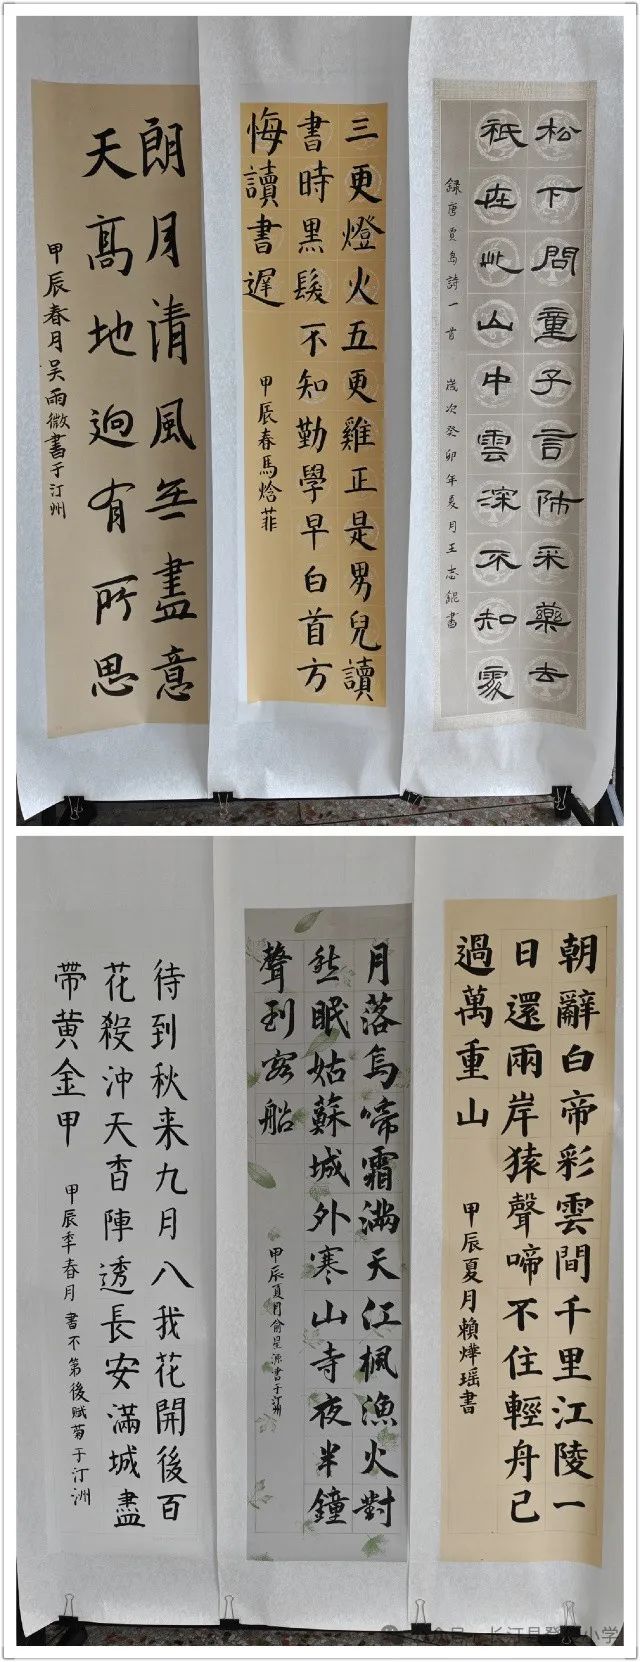 松下問童子言師采藥去
祇在此山中雲深不知處
録唐賈島詩一首 歲次癸卯年夏月王志錕書
三更燈火五更雞正是男兒讀
書時黑髮不知勤學早白首方
悔讀書遲
甲辰春馬焓菲
朗月清風無盡意
天髙地迥有所思
甲辰春月吴雨微書于汀州
朝辭白帝彩雲間千里江陵一
日還兩岸猿聲啼不住輕舟已
過萬重山
甲辰夏月賴燁瑶書
月落烏啼霜滿天江楓漁火對
愁眠姑蘇城外寒山寺夜半鐘
聲到客船
甲辰夏月俞星源書于汀洲
待到秋来九月八我花開後百
花殺沖天香陣透長安滿城盡
帶黄金甲
甲辰季春月書不第後赋菊于汀洲
长汀县 小学